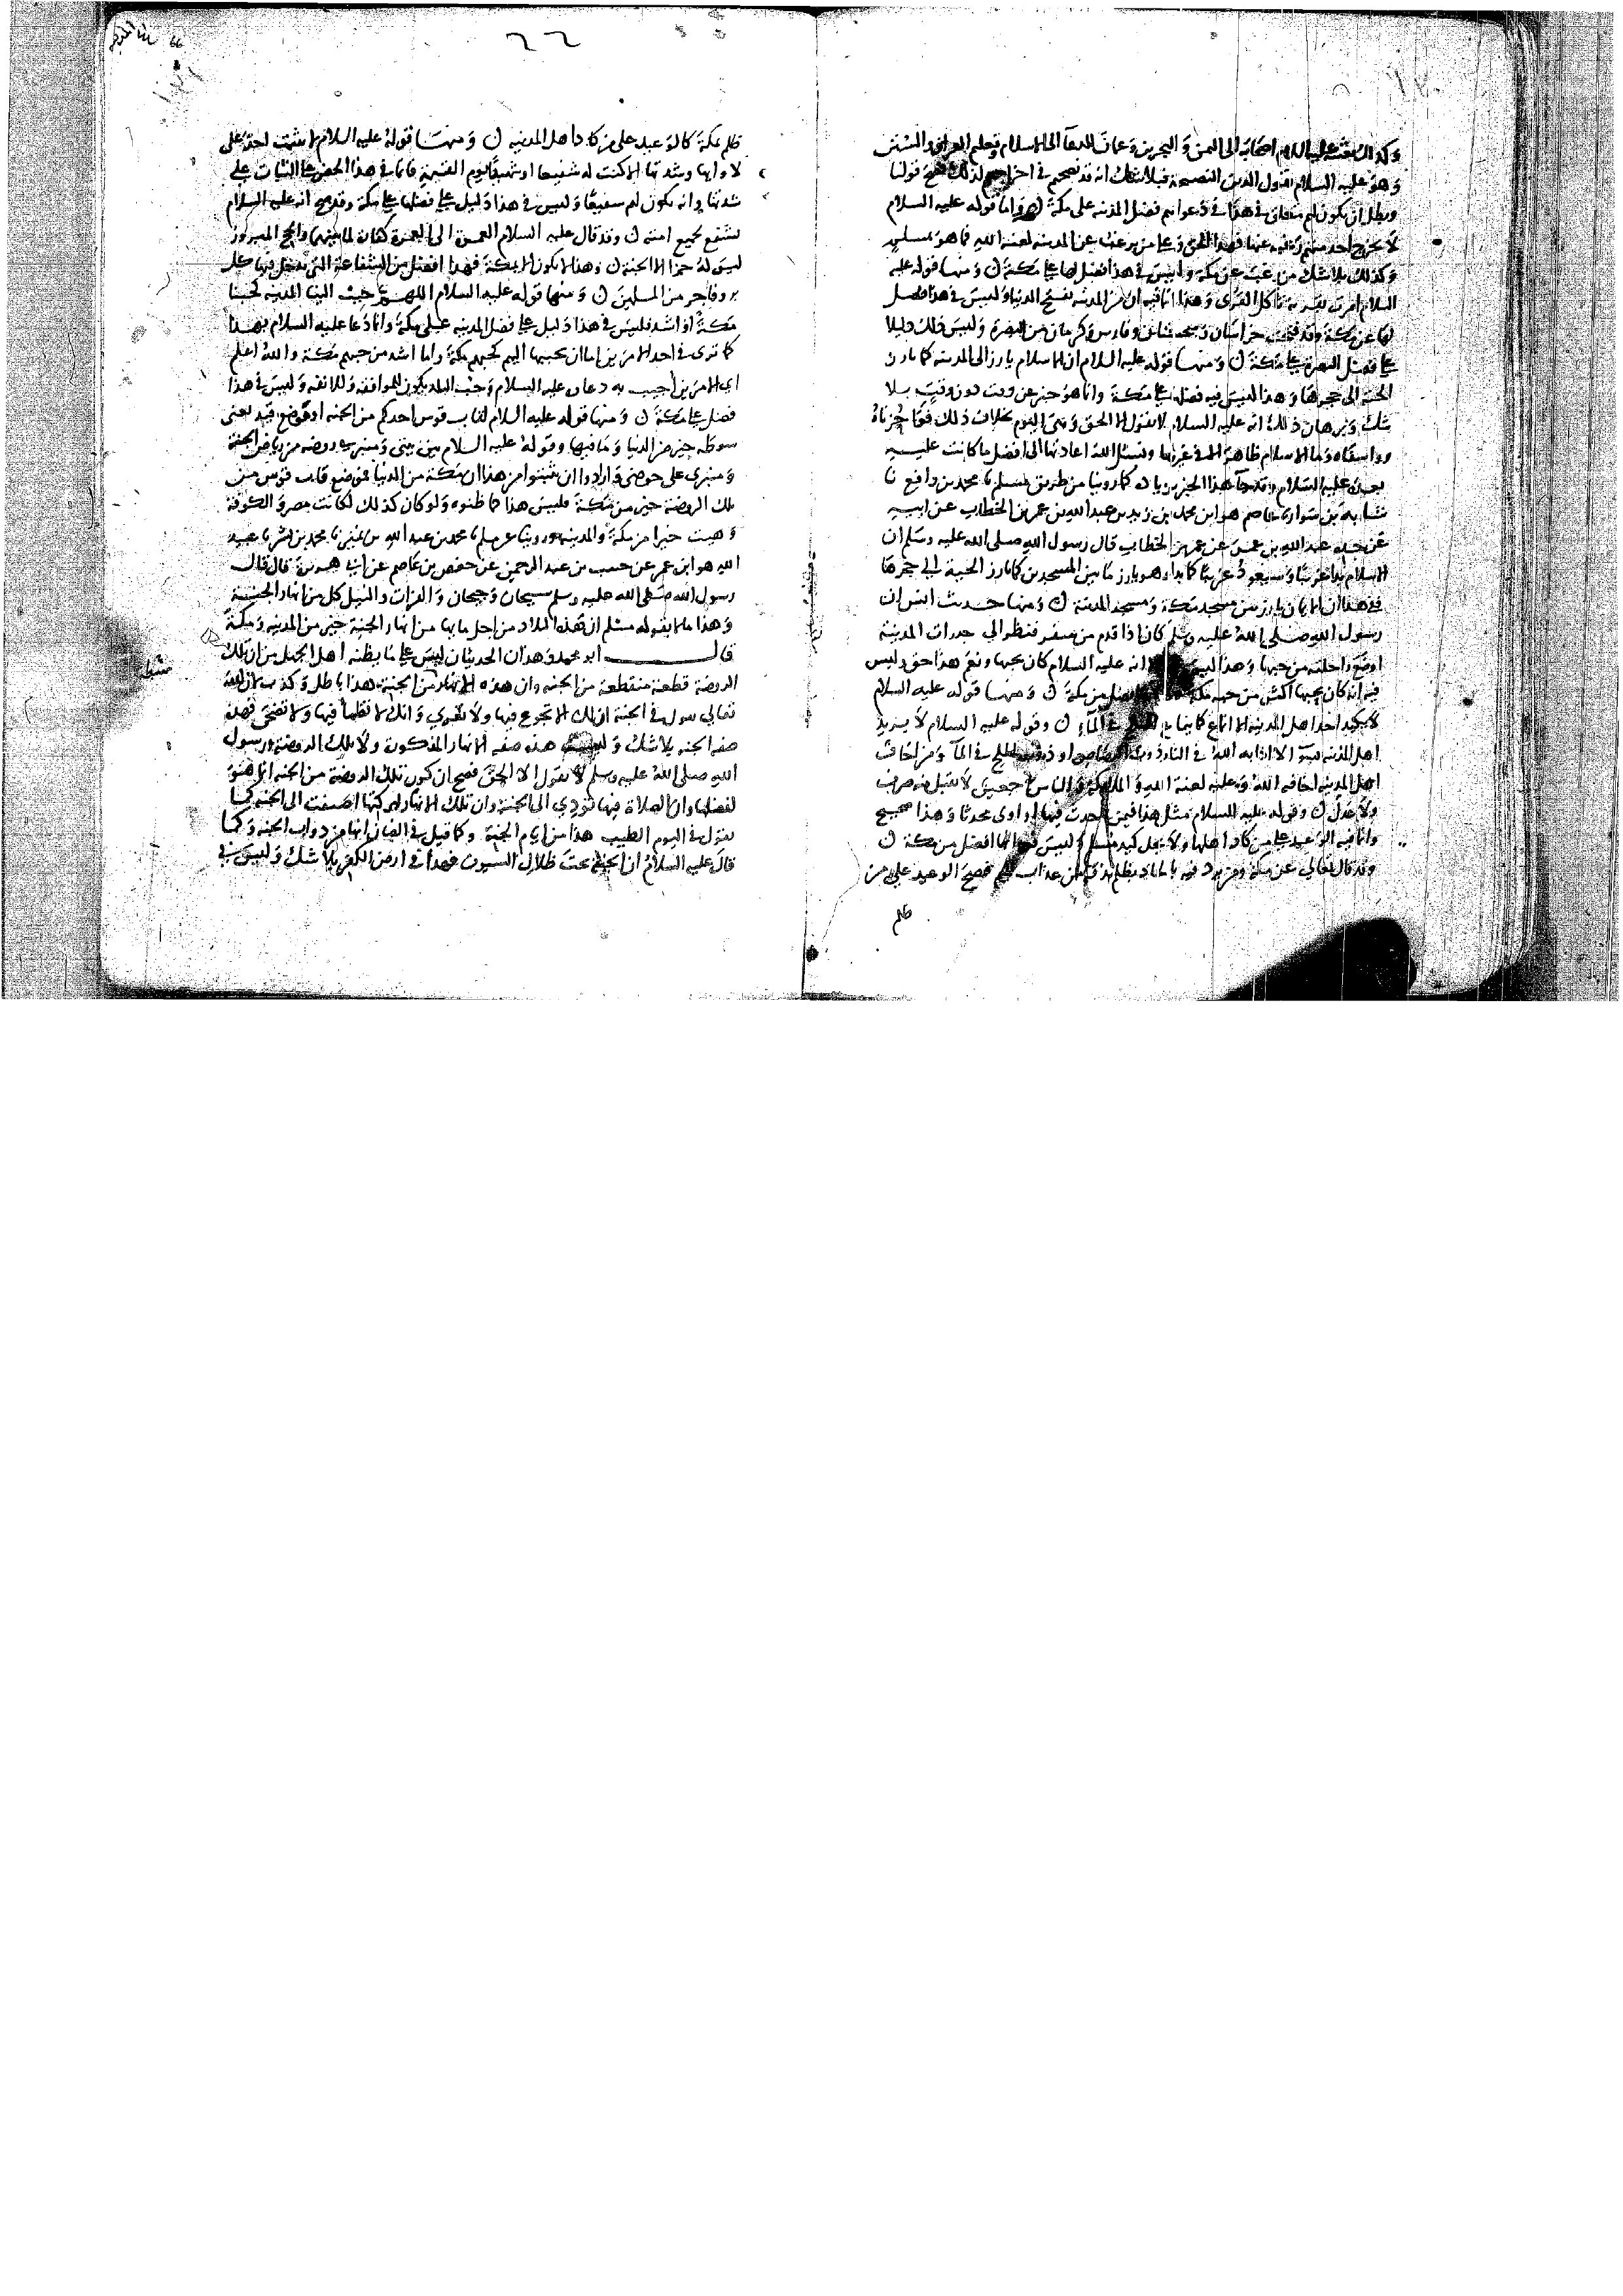 وكذلك بعثته عليه السلام اصحابه الى اليمن والبحرين وعمان للدعآ الى الاسلام وتعلم القرآن والسنن
وهو عليه السلام يقول الدين النصيحة فبلا شك انه قد نصحهم في اخراجهم لذلك فصح قولنا
وبطل ان يكون لهم متعلق في هذا في دعواهم فضل المدينه على مكة ن واما قوله عليه السلام
لا يخرج احد منهم رغبه عنها فهذا الحق وعلى من يرغب عن المدينه لعنة الله فما هو بمسلم
وكذلك بلا شك من رغب عن مكة وليس في هذا فضل لها على مكة ن ومنها قوله عليه
السلام امرت بقرية تأكل القرى وهذا انما فيه ان من المدينه تفتح الدنيا وليس في هذا فضل
لها عن مكة وقد فتحت خراسان وسجستان وفارس وكرمان من البصرة وليس ذلك دليلا
على فضل البصرة على مكة ن ومنها قوله عليه السلام ان الاسلام يارز الى المدينه كما تارز
الحية الى جحرها وهذا ليس فيه فضلها على مكة وانما هو خبر عن وقت دون وقت بلا
شك وبرهان ذلك انه عليه السلام لا يقول الا الحق وهي اليوم بخلاف ذلك فوا حزناه
ووا اسفاه وما الاسلام ظاهرا الا في غيرها ونسئل الله اعادتها الى افضل ما كانت عليه
بعده عليه السلام وقد جآ هذا الخبر بزيادة كما روينا من طريق مسلم نا محمد بن رافع نا
شبابة بن سوار نا عاصم هو ابن محمد بن زيد بن عبد الله بن عمر بن الخطاب عن ابيه
عن جده عبد الله بن عمر عن عمر بن الخطاب قال رسول الله صلى الله عليه وسلم ان
الاسلام بدا غريبا وسيعود غريبا كما بدا وهو يارز ما بين المسجدين كما تارز الحية الى جحرها
ففي هذا ان الايمان يارز بين مسجد مكة ومسجد المدينة ن ومنها حديث انس ان
رسول الله صلى الله عليه وسلم كان اذا قدم من سفر فنظر الى جدرات المدينة
اوضع راحلته من حبها وهذا ليس انه عليه السلام كان يحبها ونعم هذا حق وليس
فيه انه كان يحبها اكثر من حبه مكة افضل من مكة ن ومنها قوله عليه السلام
لا يكيد احد اهل المدينه الا انماع كما ينماع الملح في المآء ن وقوله عليه السلام لا يريد
اهل المدينه بسوء الا اذابه الله في النار ذوب الرصاص او ذوب الملح في المآ ومن اخاف
اهل المدينه اخافه الله وعليه لعنة الله والملائكة والناس اجمعين لا يقبل منه صرف
ولا عدل ن وقوله عليه السلام مثل هذا فيمن احدث فيها او اوى محدثا وهذا صحيح
وانما فيه الوعيد على من كاد اهلها ولا يحل كيد مسلم وليس فيه انها افضل من مكة ن
وقد قال تعالى عن مكة ومن يرد فيه بالحاد بظلم نذقه من عذاب اليم فصح الوعيد على من
ظلم
ظلم بمكة كالوعيد على من كاد اهل المدينه ن ومنها قوله عليه السلام لا يثبت احد على
لاوايها وشدتها الا كنت له شفيعا او شهيدا يوم القيمة فانما في هذا الحض على الثبات على
شدتها وانه يكون لهم شفيعا وليس في هذا دليل على فضلها على مكة وقد صح انه عليه السلام
يشفع لجميع امته ن وقد قال عليه السلام العمرة الى العمرة كفارة لما بينهما والحج المبرور
ليس له جزا الا الجنة ن وهذا لا يكون الا بمكة فهذا افضل من الشفاعة التي يدخل فيها كل
بر وفاجر من المسلمين ن ومنها قوله عليه السلام اللهم حبب الينا المدينه كحبنا
مكة او اشد فليس في هذا دليل على فضل المدينه على مكة وانما دعا عليه السلام بهذا
كما ترى في احد الامرين اما ان يحببها اليهم كحبهم مكة واما اشد من حبهم مكة والله اعلم
اي الامرين اجيب به دعاؤه عليه السلام وحب البلد يكون للموافقه وللالفه وليس في هذا
فضل على مكة ن ومنها قوله عليه السلام لقاب قوس احدكم من الجنه او موضع قيد يعني
سوطه خير من الدنيا وما فيها وقوله عليه السلام بين بيتي ومنبري روضه من رياض الجنة
ومنبري على حوضي وارادوا ان يثبتوا من هذا ان مكة من الدنيا فموضع قاب قوس من
تلك الروضة خير من مكة فليس هذا كما ظنوه ولو كان كذلك لكانت مصر والكوفة
وهيت خيرا من مكة والمدينه روينا من مسلم نا محمد بن عبد الله بن نمير نا محمد بن بشر نا عبيد
الله هو ابن عمر عن خبيب بن عبد الرحمن عن حفص بن عاصم عن ابي هريرة قال قال
رسول الله صلى الله عليه وسلم سيحان وجيحان والفرات والنيل كل من انهار الجنة
وهذا ما لا يقوله مسلم ان هذه البلاد من اجل ما بها من انهار الجنة خير من المدينه ومكة
قال ابو محمد وهذان الحديثان ليس على ما يظنه اهل الجهل من ان تلك
الروضة قطعة منقطعة من الجنه وان هذه الانهار من الجنة هذا باطل وكذب لان الله
تعالى يقول في الجنة ان لك الا تجوع فيها ولا تعرى وانك لا تظمأ فيها ولا تضحى فهذه
صفة الجنه بلا شك وليست هذه صفه الانهار المذكورة ولا تلك الروضة ورسول
الله صلى الله عليه وسلم لا يقول الا الحق فصح ان كون تلك الروضة من الجنه انما هو
لفضلها وان الصلاة فيها تودي الى الجنة وان تلك الانهار لبركتها اضيفت الى الجنه كما
نقول في اليوم الطيب هذا من ايام الجنة وكما قيل في الضان انها من دواب الجنه وكما
قال عليه السلام ان الجنة تحت ظلال السيوف فهذا في ارض الكفر بلا شك وليس في